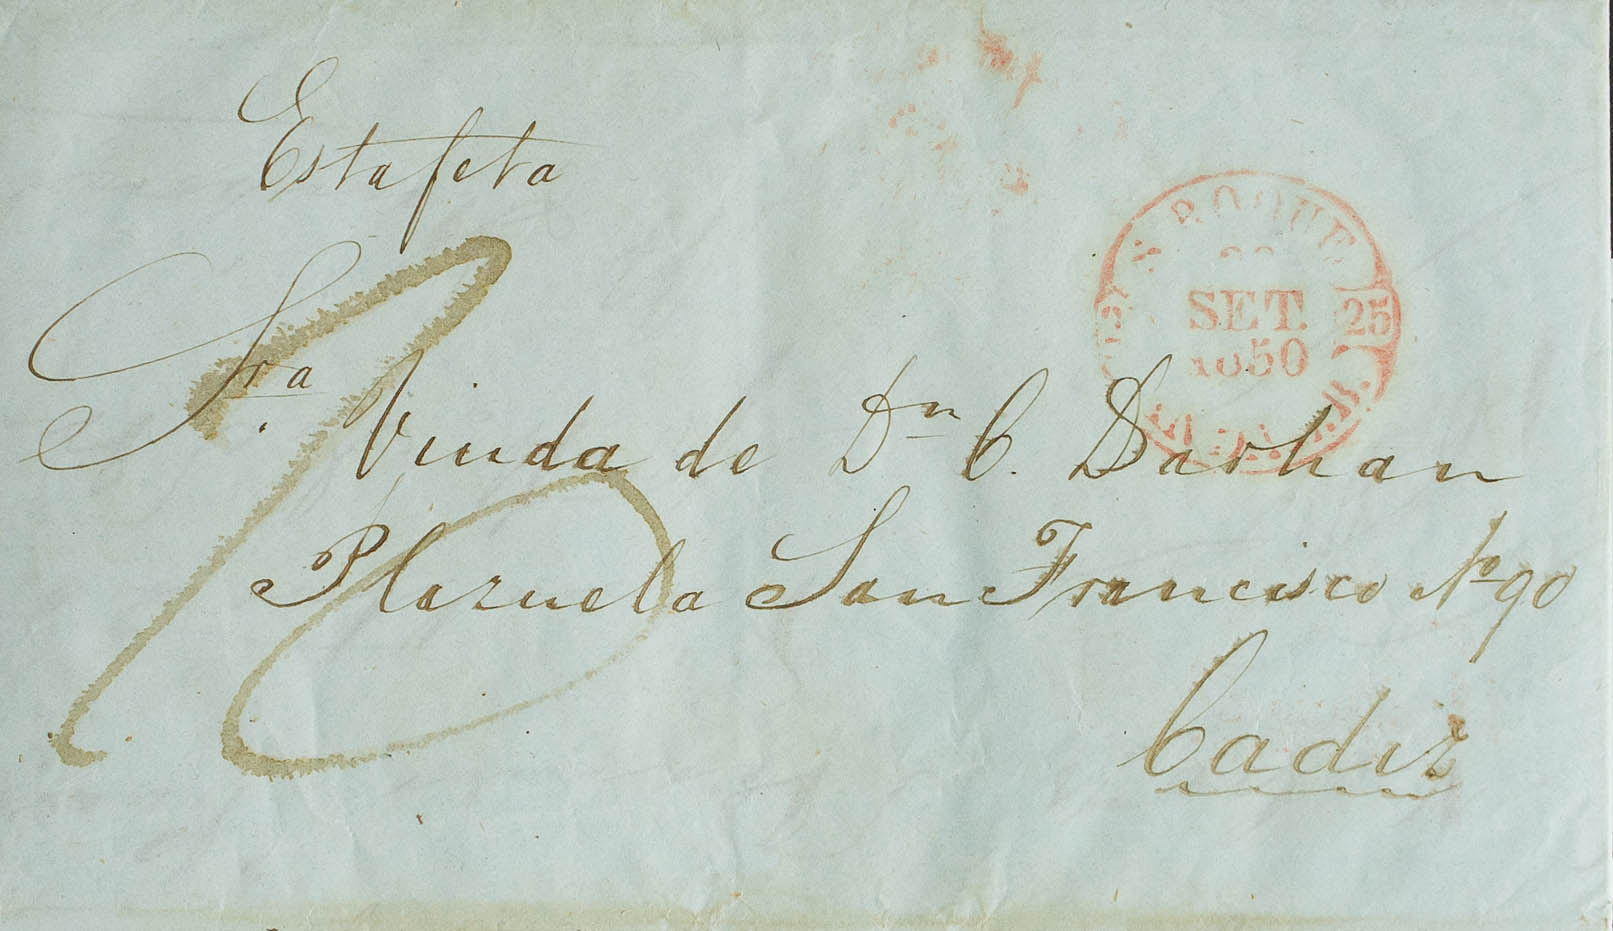 Estafeta
Sra Viuda de Dn C. Darhan
Plazuela San Francisco No 90
Cadiz
S. ROQUE
SET.
1850
25
10